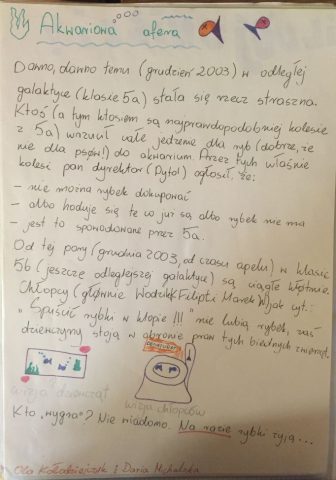 Akwariowa afera
Dawno, dawno temu (grudzień 2003) w odległej
galaktyce (klasie 5a) stała się rzecz straszna.
Ktoś (a tym ktosiem są najprawdopodobniej kolesie
z 5a) wrzucił całe jedzenie dla ryb (dobrze, że
nie dla psów!) do akwarium. Przez tych właśnie
kolesi pan dyrektor (Pytol) ogłosił, że:
- nie można rybek dokupować
- albo hoduje się te co już są albo rybek nie ma
- jest to spowodowane przez 5a.
Od tej pory (grudnia 2003, od czasu apelu) w klasie
5b (jeszcze odleglejszej galaktyce) są ciągłe kłótnie.
Chłopcy (głównie Filip i Marek cyt.:
"Spuścić rybki w klopie !!!" nie lubią rybek, zaś
dziewczyny stoją w obronie praw tych biednych zwierząt.
wizja dziewcząt
wizja chłopców
Kto "wygra"? Nie wiadomo. Na razie rybki żyją...
Ola Kołodziejczyk i Daria Michalska